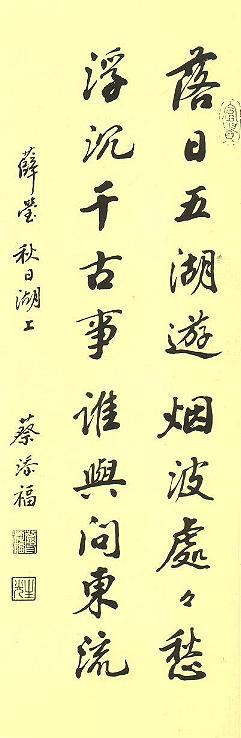 落日五湖遊烟波處々愁
浮沉千古事誰與問東流
薛瑩秋日湖上
蔡添福